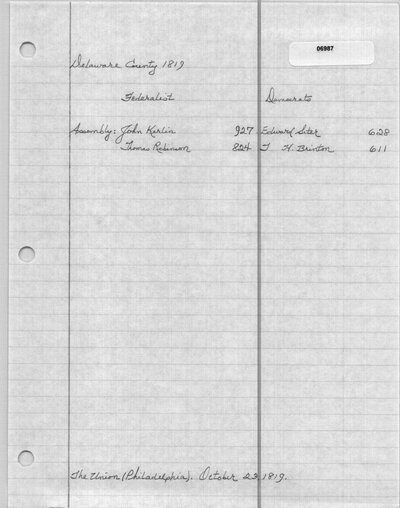 06987
Delaware County 1819
Federalist Democrats
Assembly: John Kerlin 927 Edward Siter 628
Thomas Robinson 824 T H. Brinton 611
The Union (Philadelphia). October 23, 1819.